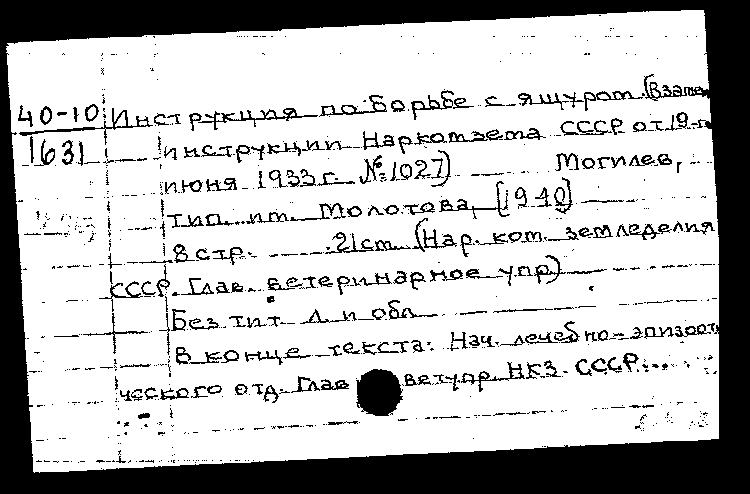 40-10 Инструкция по борьбе с ящуром. (Взамен
1631 инструкции Наркомзема СССР от 19-го
июня 1933 г. № 1027) Могилев,
тип. им. Молотова, [1940]
8 стр. 21 cm. (Нар. ком. земледелия
СССР. Глав. ветеринарное упр)
Без тит л. и обл
В конце текста: Нач. лечебно-эпизооти
ческого отд. Глав ветупр. НКЗ. СССР:...